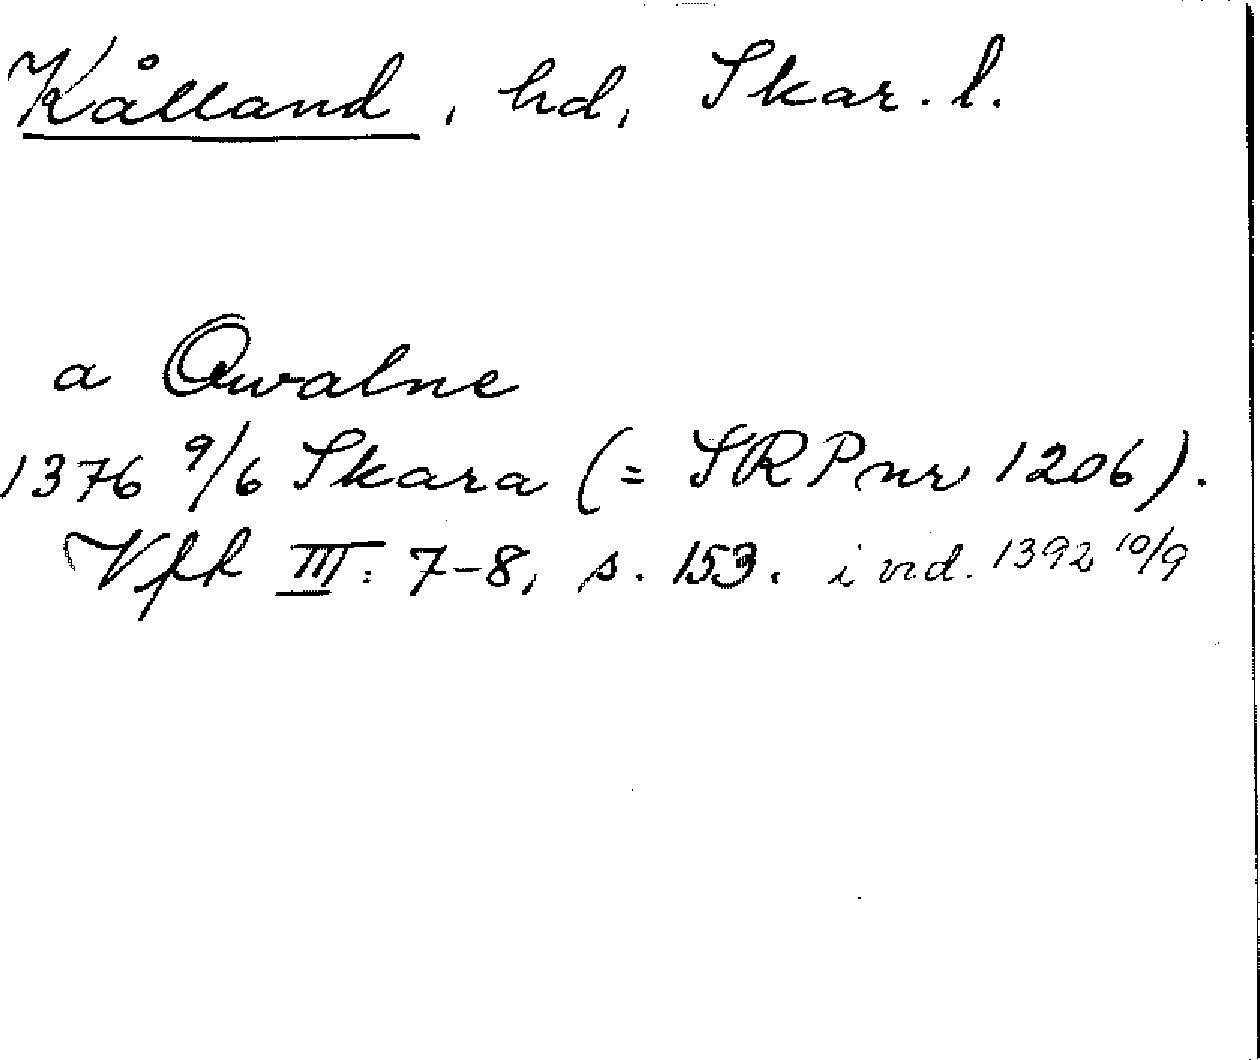 Kålland, hd, Skar. l.
a Qwalne
1376 9/6 Skara (= SRP nr 1206).
Vfk III: 7-8, s. 153. i vid. 1392 10/9